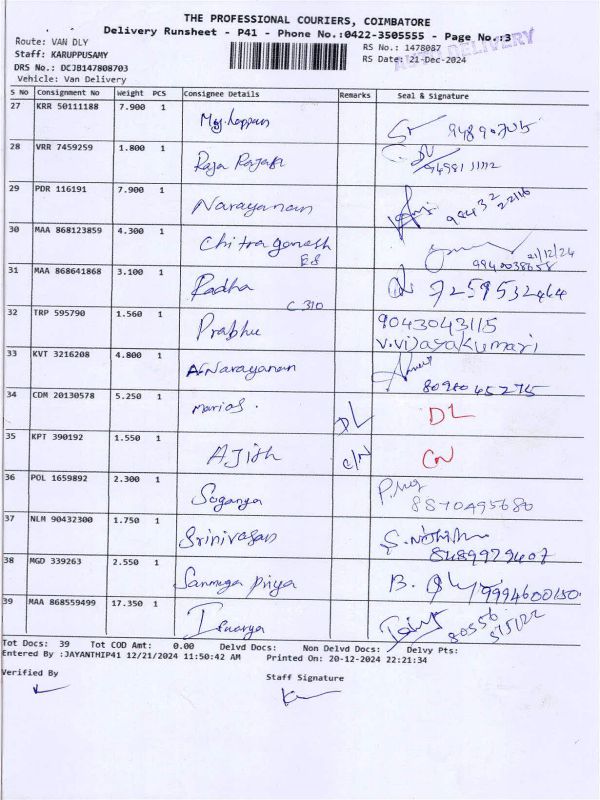 THE PROFESSIONAL COURIERS, COIMBATORE
Delivery Runsheet - P41 - Phone No.:0422-3505555 - Page No.:3
DELIVERY
Route: VAN DLY
RS No.: 1478087
Staff: KARUPPUSAMY
RS Date: 21-Dec-2024
DRS No.: DCJB147808703
Vehicle: Van Delivery
S No Consignment No Weight PCS Consignee Details Remarks Seal & Signature
27 KRR 50111188 7.900 1
28 VRR 7459259 1.800 1 Raja Rajan
29 PDR 116191 7.900 1 Narayanan 98432 22116
30 MAA 868123859 4.300 1 Chitra ganesh 21/12/24
E8 9940038658
31 MAA 868641868 3.100 1 Radha 7259532464
C 310
32 TRP 595790 1.560 1 Prabhu 9043043115
V.Vijayakumari
33 KVT 3216208 4.800 1 A. Narayanan
34 CDM 20130578 5.250 1 Marias. DL DL
35 KPT 390192 1.550 1 Ajith C/N CN
36 POL 1659892 2.300 1 Suganya
8870495680
37 NLM 90432300 1.750 1 Srinivasan
8489979407
38 MGD 339263 2.550 1 Sanmuga Priya 9994600150
39 MAA 868559499 17.350 1
Tot Docs: 39 Tot COD Amt: 0.00 Delvd Docs: Non Delvd Docs: Delvy Pts:
Entered By :JAYANTHIP41 12/21/2024 11:50:42 AM Printed On: 20-12-2024 22:21:34
Verified By
Staff Signature